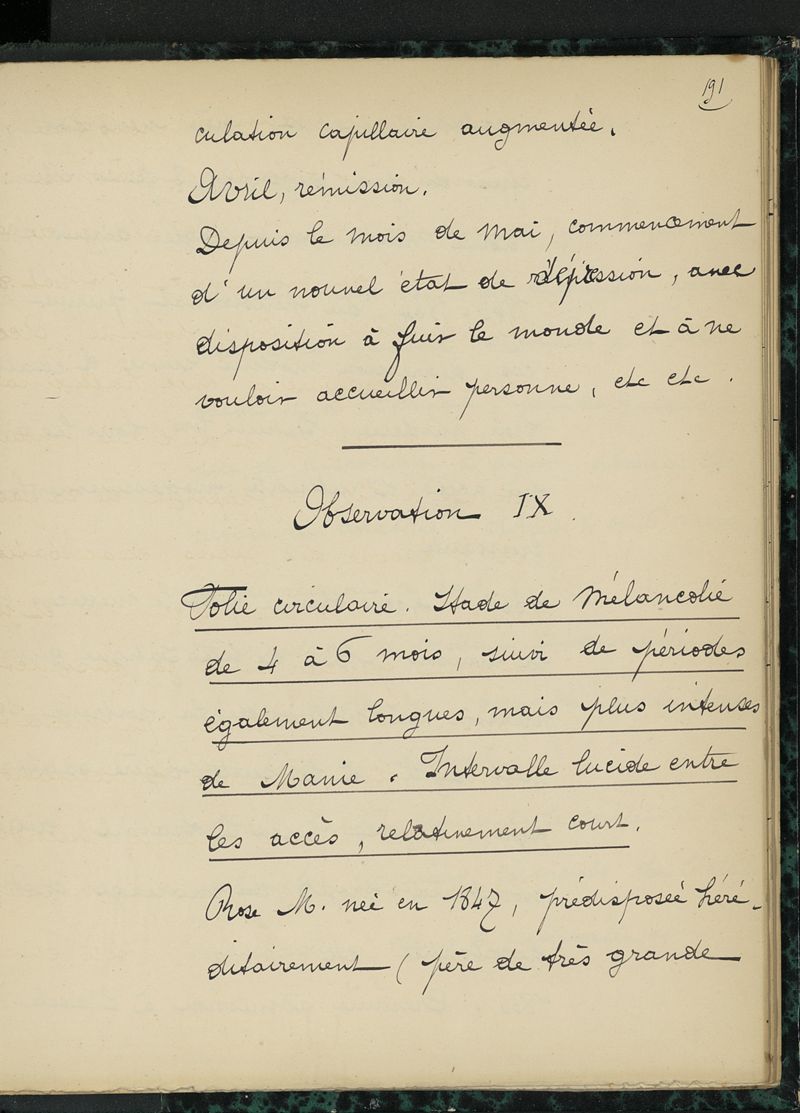 191
culation capillaire augmentée.
Avril, rémission.
Depuis le mois de mai, commencement
d'un nouvel état de dépression, avec
disposition à fuir le monde et à ne
vouloir accueillir personne, etc etc.
Observation IX.
Folie circulaire. Stade de Mélancolie
de 4 à 6 mois, suivi de périodes
également longues, mais plus intenses
de Manie. Intervalle lucide entre
les accès, relativement court.
Rose M. née en 1847, prédisposée héré-
ditairement (père de très grande